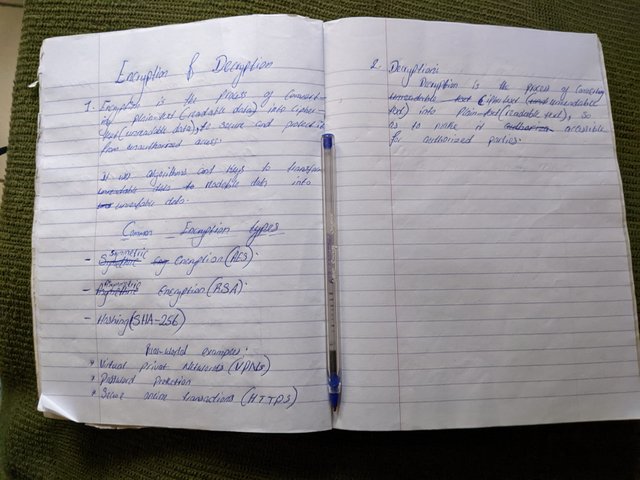 Encryption & Decryption
1. Encryption is the process of convert-
ing plain-text (readable data) into cipher-
text (unreadable data), to secure and protect it
from unauthorized access.
It uses algorithms and keys to transform
unreadable data to readable data into
unreadable data.
Common Encryption types
Symmetric
- Encryption (AES).
Asymmetric
- Encryption (RSA).
- Hashing (SHA-256)
Real-world examples:
* Virtual private Networks (VPNs)
* Password protection
* Secure online transactions (HTTPS)
2. Decryption:
Decryption is the process of converting
unreadable text Ciphertext (unreadable
text) into plain-text (readable text), so
as to make it accessible
for authorized parties.